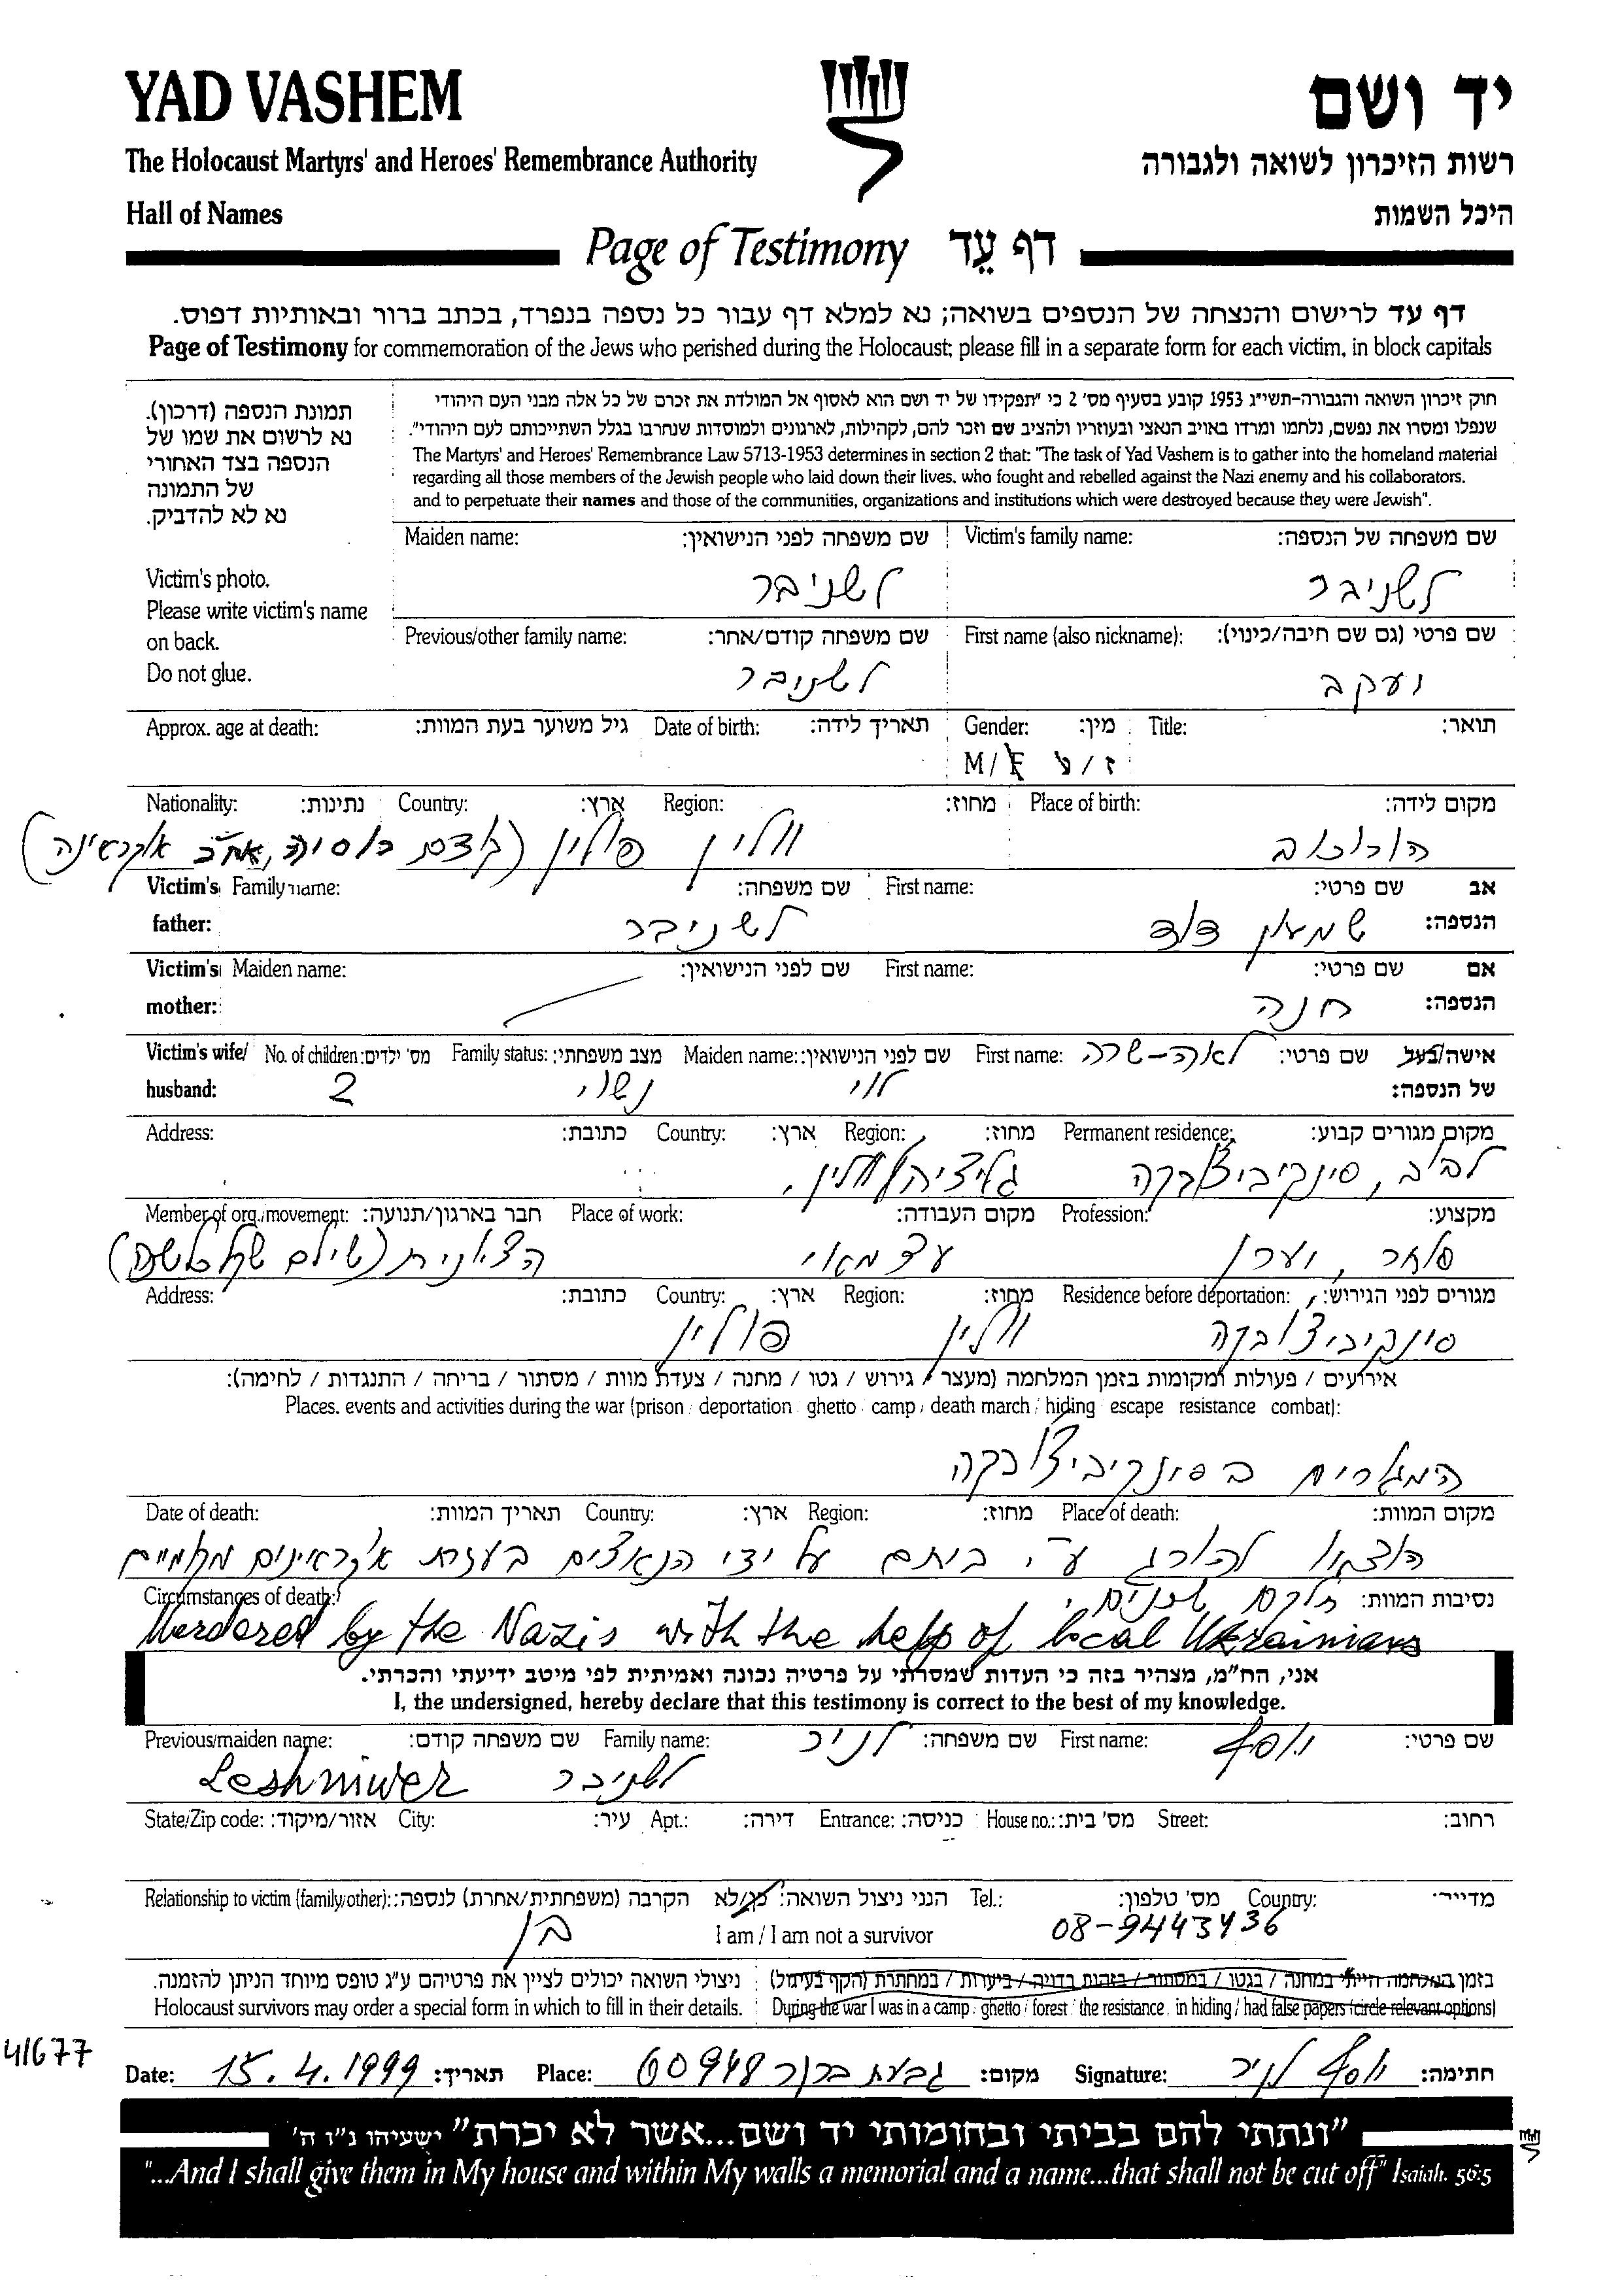 YAD VASHEM
יד ושם
The Holocaust Martyrs' and Heroes' Remembrance Authority
רשות הזיכרון לשואה ולגבורה
Hall of Names
היכל השמות
Page of Testimony דף עֵד
דף עד לרישום והנצחה של הנספים בשואה; נא למלא דף עבור כל נספה בנפרד, בכתב ברור ובאותיות דפוס.
Page of Testimony for commemoration of the Jews who perished during the Holocaust; please fill in a separate form for each victim, in block capitals
תמונת הנספה (דרכון).
נא לרשום את שמו של
הנספה בצד האחורי
של התמונה
נא לא להדביק.
Victim's photo.
Please write victim's name
on back.
Do not glue.
חוק זיכרון השואה והגבורה-תשי"ג 1953 קובע בסעיף מס' 2 כי "תפקידו של יד ושם הוא לאסוף אל המולדת את זכרם של כל אלה מבני העם היהודי
שנפלו ומסרו את נפשם, נלחמו ומרדו באויב הנאצי ובעוזריו ולהציב שם וזכר להם, לקהילות, לארגונים ולמוסדות שנחרבו בגלל השתייכותם לעם היהודי".
The Martyrs' and Heroes' Remembrance Law 5713-1953 determines in section 2 that: "The task of Yad Vashem is to gather into the homeland material
regarding all those members of the Jewish people who laid down their lives, who fought and rebelled against the Nazi enemy and his collaborators,
and to perpetuate their names and those of the communities, organizations and institutions which were destroyed because they were Jewish".
Maiden name: שם משפחה לפני הנישואין: Victim's family name: שם משפחה של הנספה:
לשניבר לשניבר
Previous/other family name: שם משפחה קודם/אחר: First name (also nickname): שם פרטי (גם שם חיבה/כינוי):
לשניבר יעקב
Approx. age at death: גיל משוער בעת המוות: Date of birth: תאריך לידה: Gender: מין: Title: תואר:
M/F ז/נ
Nationality: נתינות: Country: ארץ: Region: מחוז: Place of birth: מקום לידה:
הורוכוב ווולין פולין (קודם רוסיה, אח"כ אוקראינה)
Victim's father: Family name: שם משפחה: First name: שם פרטי: אב הנספה:
לשניבר שמעון דוד
Victim's mother: Maiden name: שם לפני הנישואין: First name: שם פרטי: אם הנספה:
חנה
Victim's wife/ husband: No. of children: מס' ילדים: Family status: מצב משפחתי: Maiden name: שם לפני הנישואין: First name: שם פרטי: אישה/בעל של הנספה:
לאה-שרה לוי נשוי 2
Address: כתובת: Country: ארץ: Region: מחוז: Permanent residence: מקום מגורים קבוע:
לבוב, סינקיביצ'ובקה גליציה/ווולין.
Member of org./movement: חבר בארגון/תנועה: Place of work: מקום העבודה: Profession: מקצוע:
סוחר, יערן עצמאי הציונית (שילם שקל
Address: כתובת: Country: ארץ: Region: מחוז: Residence before deportation: מגורים לפני הגירוש:
סינקיביצ'ובקה ווולין פולין
אירועים / פעולות ומקומות בזמן המלחמה (מעצר / גירוש / גטו / מחנה / צעדת מוות / מסתור / בריחה / התנגדות / לחימה):
Places, events and activities during the war (prison / deportation / ghetto / camp / death march / hiding / escape / resistance / combat):
המגורים בסינקיביצ'ובקה
Date of death: תאריך המוות: Country: ארץ: Region: מחוז: Place of death: מקום המוות:
הוצאו להורג ע"י ביתם על ידי הנאצים בעזרת אוקראינים מקומיים
Circumstances of death: נסיבות המוות:
חלקם שכנים.
Murdered by the Nazis with the help of local Ukrainians
אני, הח"מ, מצהיר בזה כי העדות שמסרתי על פרטיה נכונה ואמיתית לפי מיטב ידיעתי והכרתי.
I, the undersigned, hereby declare that this testimony is correct to the best of my knowledge.
Previous/maiden name: שם משפחה קודם: Family name: שם משפחה: First name: שם פרטי:
יוסף לניר
Leshniwer לשניבר
State/Zip code: אזור/מיקוד: City: עיר: Apt.: דירה: Entrance: כניסה: House no.: מס' בית: Street: רחוב:
Relationship to victim (family/other): הקרבה (משפחתית/אחרת) לנספה: הנני ניצול השואה: כן/לא Tel.: מס' טלפון: Country: מדינה:
בן I am / I am not a survivor 08-9443436
בזמן המלחמה הייתי במחנה / בגטו / במסתור / בזהות בדויה / ביערות / במחתרת (הקף בעיגול)
ניצולי השואה יכולים לציין את פרטיהם ע"ג טופס מיוחד הניתן להזמנה.
Holocaust survivors may order a special form in which to fill in their details.
During the war I was in a camp / ghetto / forest / the resistance / in hiding / had false papers (circle relevant options)
41677
Date: 15.4.1999 תאריך: Place: גבעת ברנר 60948 מקום: Signature: יוסף לניר חתימה:
"ונתתי להם בביתי ובחומותי יד ושם...אשר לא יכרת" ישעיהו נ"ו ה'
"...And I shall give them in My house and within My walls a memorial and a name...that shall not be cut off" Isaiah. 56:5